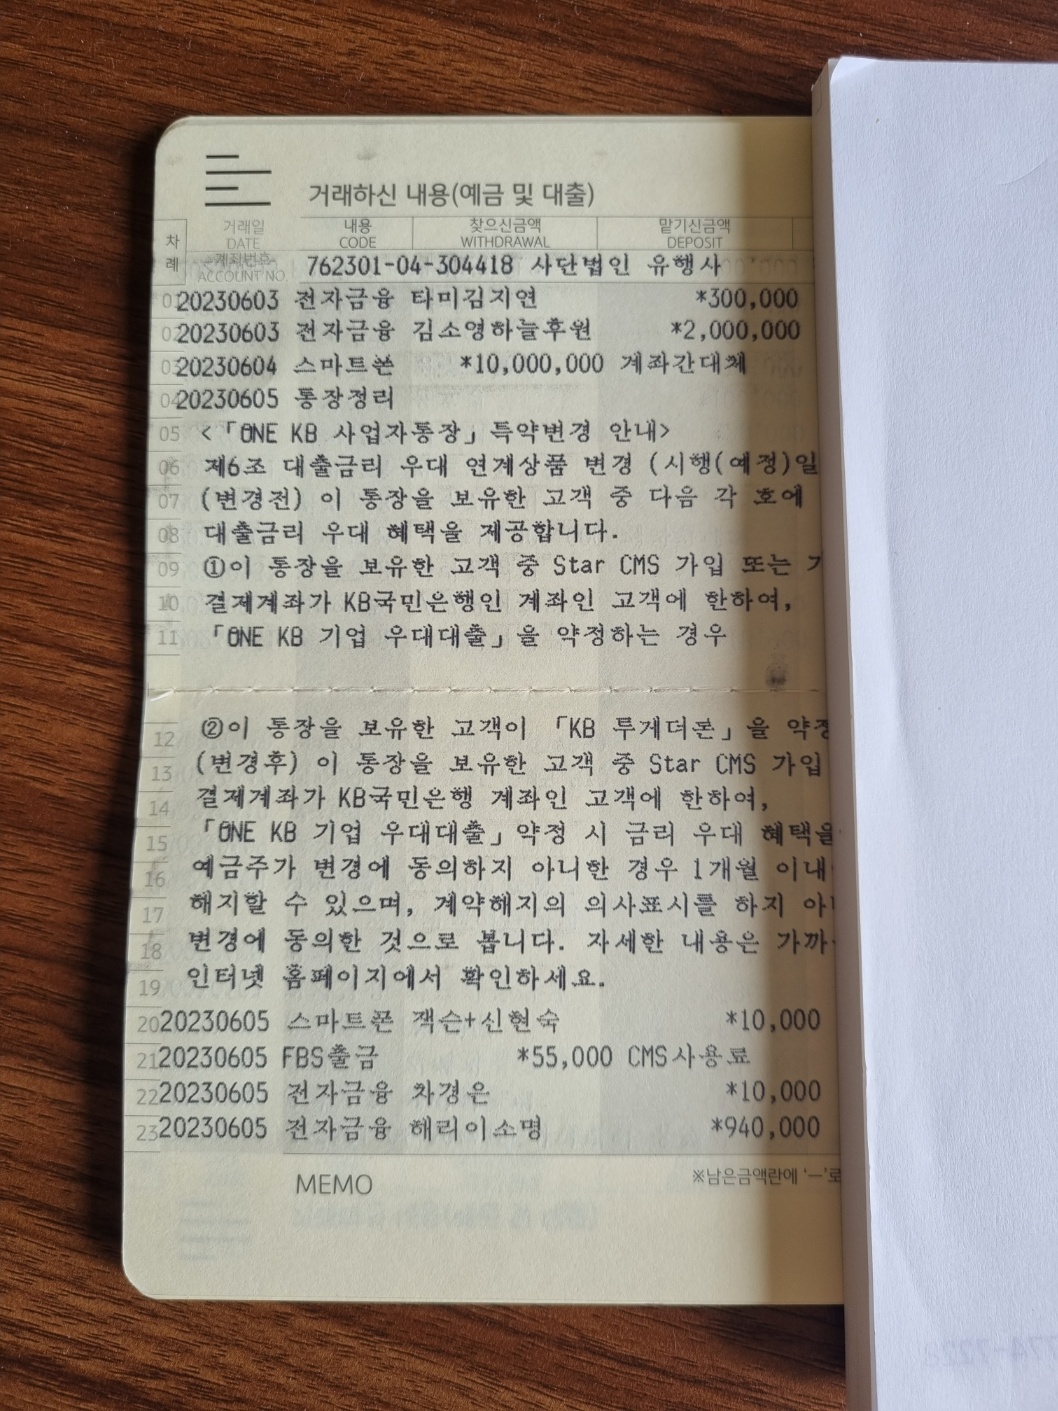 거래하신 내용(예금 및 대출)
차례 거래일 DATE 내용 CODE 찾으신금액 WITHDRAWAL 맡기신금액 DEPOSIT
계좌번호 ACCOUNT NO. 762301-04-304418 사단법인 유행사
01 20230603 전자금융 타미김지연 *300,000
02 20230603 전자금융 김소영하늘후원 *2,000,000
03 20230604 스마트폰 *10,000,000 계좌간대체
04 20230605 통장정리
05 <「ONE KB 사업자통장」특약변경 안내>
06 제6조 대출금리 우대 연계상품 변경 (시행(예정)일
07 (변경전) 이 통장을 보유한 고객 중 다음 각 호에
08 대출금리 우대 혜택을 제공합니다.
09 ①이 통장을 보유한 고객 중 Star CMS 가입 또는
10 결제계좌가 KB국민은행인 계좌인 고객에 한하여,
11 「ONE KB 기업 우대대출」을 약정하는 경우
12 ②이 통장을 보유한 고객이 「KB 투게더론」을 약정
13 (변경후) 이 통장을 보유한 고객 중 Star CMS 가입
14 결제계좌가 KB국민은행 계좌인 고객에 한하여,
15 「ONE KB 기업 우대대출」약정 시 금리 우대 혜택을
16 예금주가 변경에 동의하지 아니한 경우 1개월 이내
17 해지할 수 있으며, 계약해지의 의사표시를 하지 아
18 변경에 동의한 것으로 봅니다. 자세한 내용은 가까
19 인터넷 홈페이지에서 확인하세요.
20 20230605 스마트폰 잭슨+신현숙 *10,000
21 20230605 FBS출금 *55,000 CMS사용료
22 20230605 전자금융 차경은 *10,000
23 20230605 전자금융 해리이소명 *940,000
MEMO
※남은금액란에 '—'로